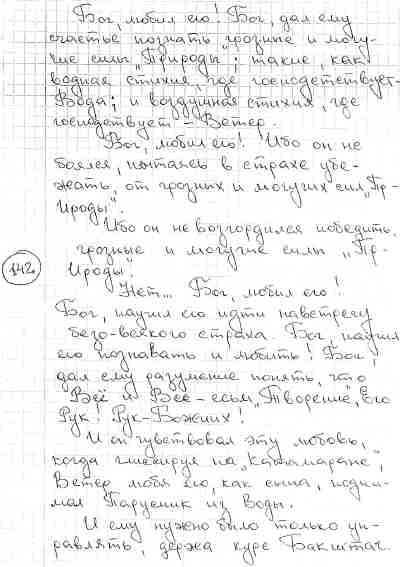 Бог, любил его! Бог, дал ему
счастье познать грозные и могу-
чие силы "Природы"; такие, как
водная стихия, где господствует-
Вода; и воздушная стихия, где
господствует - Ветер.
Бог, любил его! Ибо он не
боялся, пытаясь в страхе убе-
жать, от грозных и могучих сил "Пр-
ироды".
Ибо он не возгордился победить,
грозные и могучие силы "Пр-
ироды".
142
Нет... Бог, любил его!
Бог, научил его идти навстречу
безо-всякого страха. Бог, научил
его познавать и любить! Бог,
дал ему разумение понять, что
Всё и Все - есьм, "Творение", Его
Рук! Рук-Божиих!
И он чувствовал эту любовь,
когда глиссируя на "Катамаране",
Ветер любя его, как сына, подни-
мал Парусник из Воды.
И ему нужно было только уп-
равлять, держа курс Бакштаг.